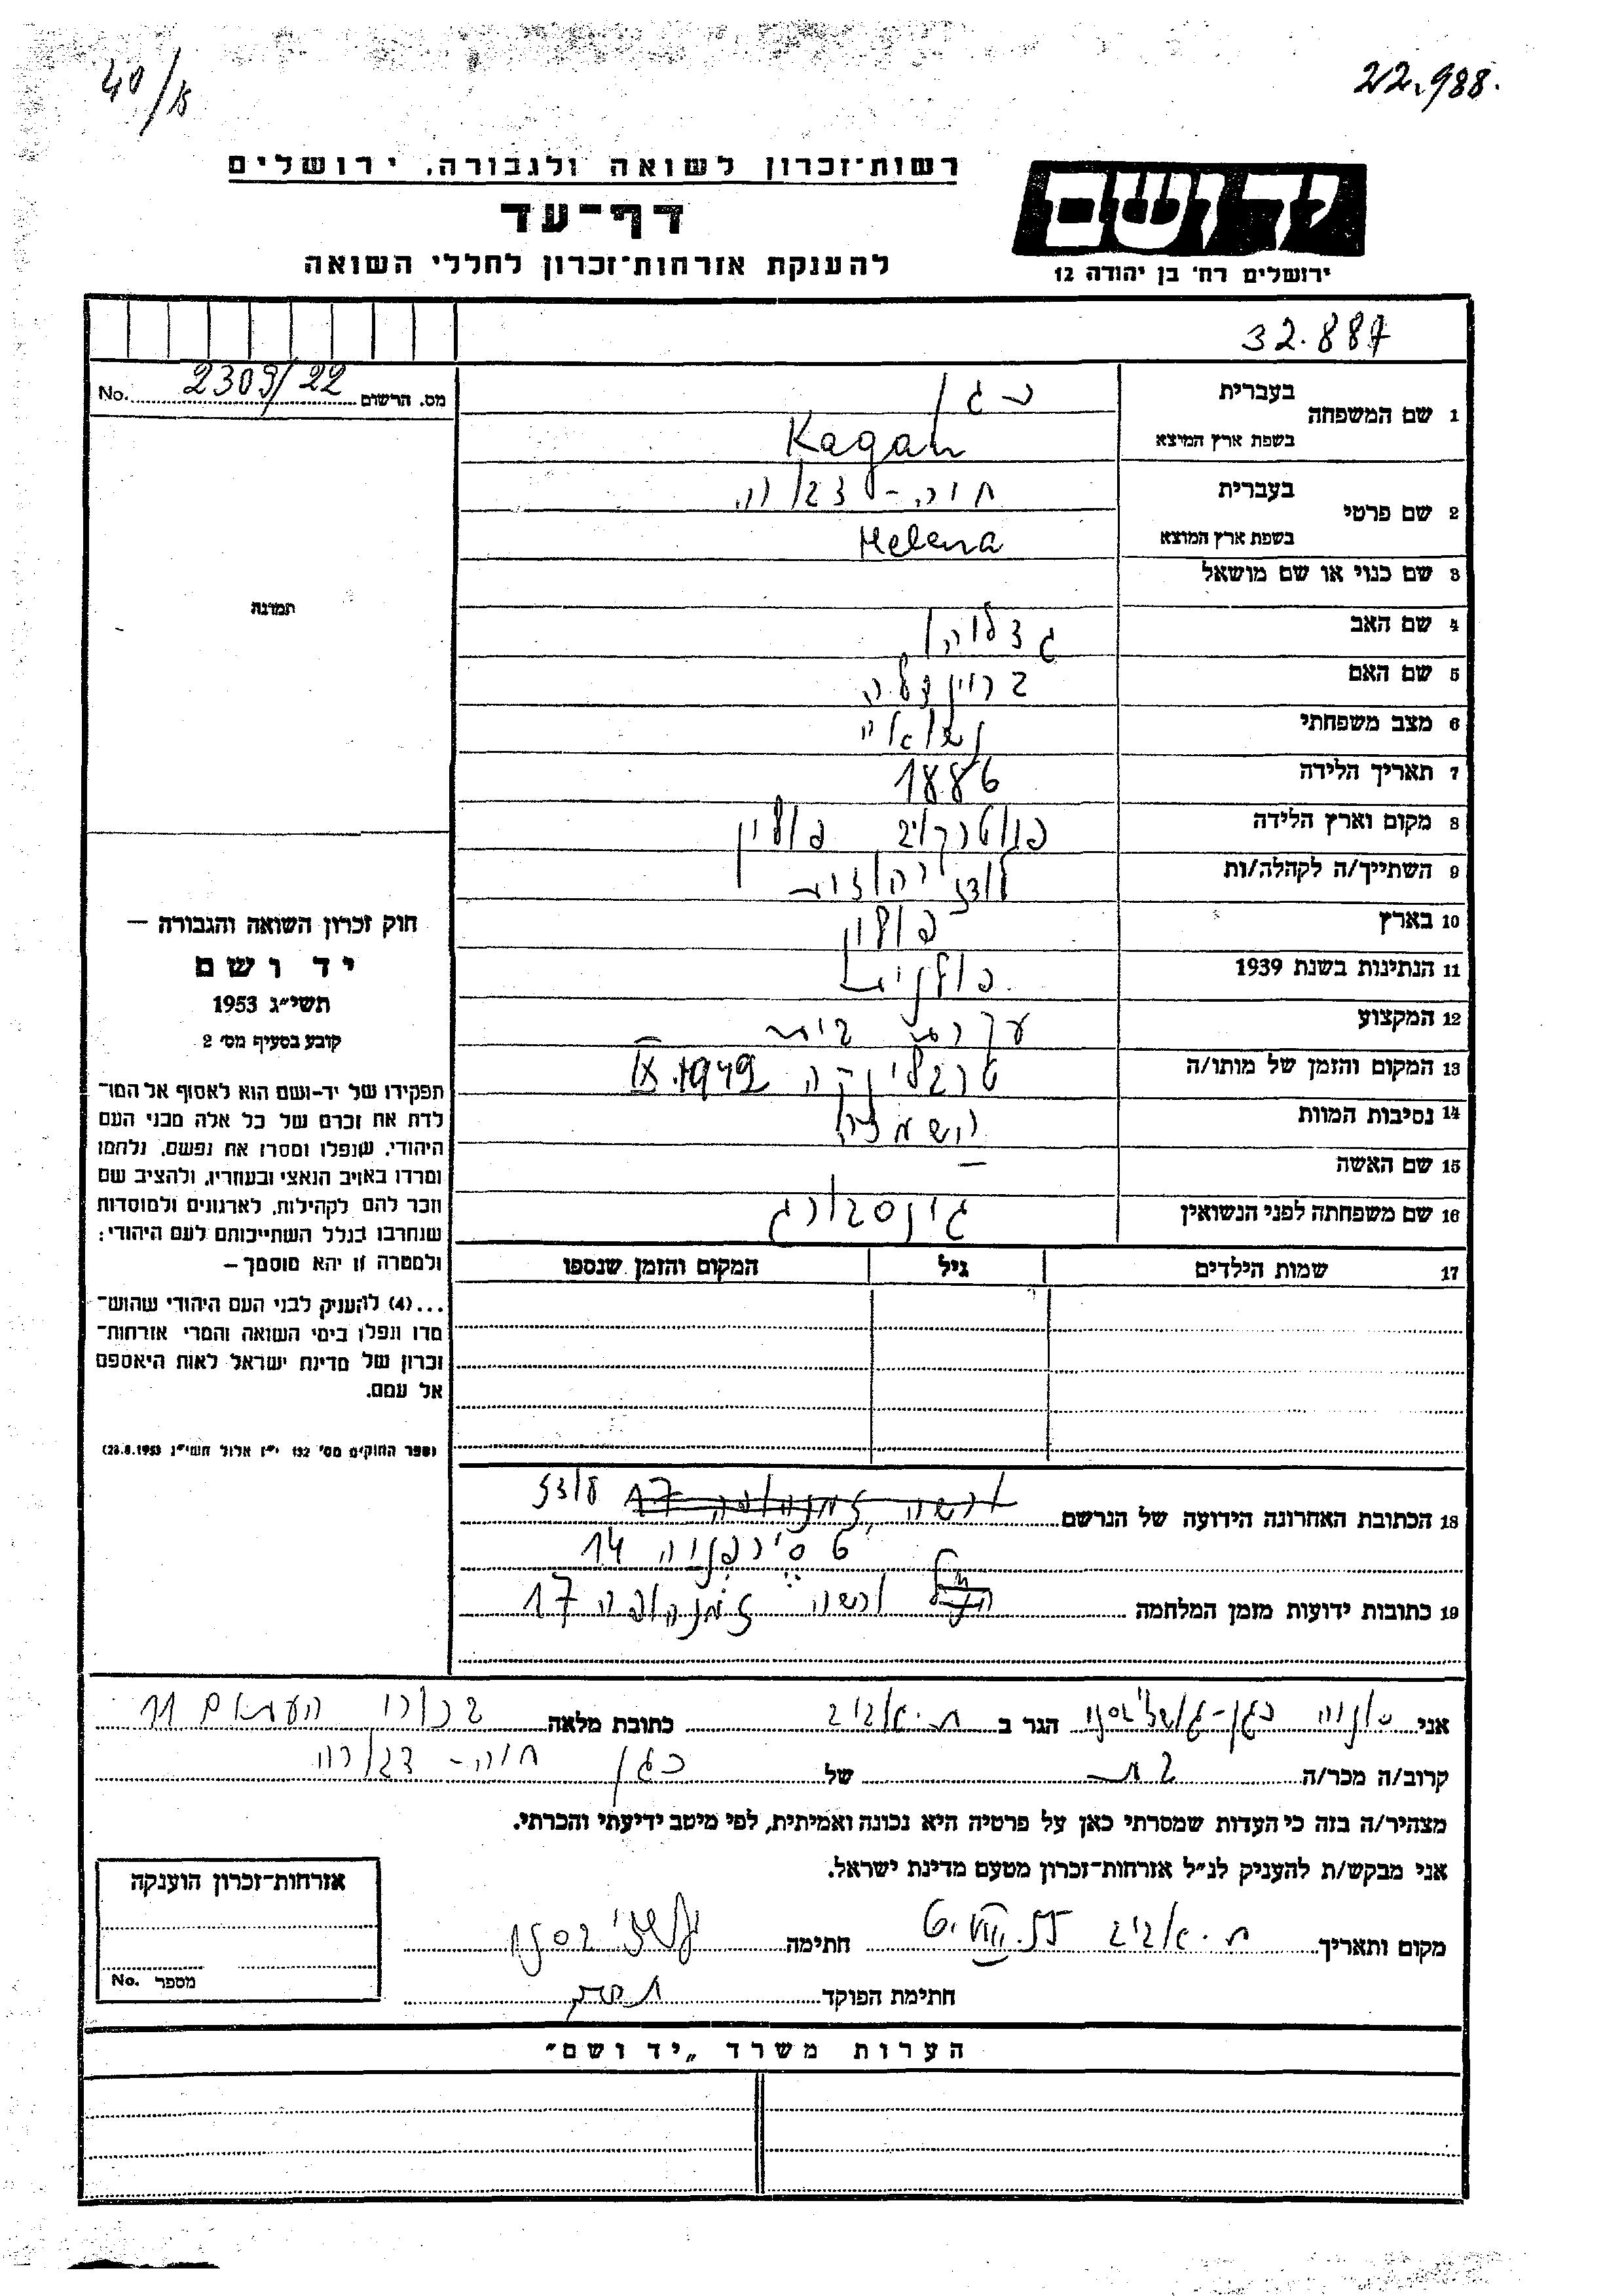 40/15
22.988.
רשות־זכרון לשואה ולגבורה, ירושלים
דף־עד
להענקת אזרחות־זכרון לחללי השואה
יד ושם
ירושלים רח' בן יהודה 12
32.887
מס. הרשום 2309/22 No.
1 שם המשפחה
בעברית כגן
בשפת ארץ המוצא Kagan
2 שם פרטי
בעברית חוה-
בשפת ארץ המוצא Helena
תמונה
3 שם כנוי או שם מושאל
4 שם האב
5 שם האם
6 מצב משפחתי נשואה
7 תאריך הלידה 1886
8 מקום וארץ הלידה פולין
9 השתייך/ה לקהלה/ות
10 בארץ פולין
11 הנתינות בשנת 1939 פולנית
12 המקצוע עקרת בית
13 המקום והזמן של מותו/ה טרבלינקה IX.1942
14 נסיבות המוות השמדה
15 שם האשה —
16 שם משפחתה לפני הנשואין גינסבורג
17 שמות הילדים גיל המקום והזמן שנספו
18 הכתובת האחרונה הידועה של הנרשם לודז
14
19 כתובות ידועות מזמן המלחמה ורשה זמנהופה 17
חוק זכרון השואה והגבורה —
יד ושם
תשי״ג 1953
קובע בסעיף מס' 2
תפקידו של יד-ושם הוא לאסוף אל המו־
לדת את זכרם של כל אלה מבני העם
היהודי, שנפלו ומסרו את נפשם, נלחמו
ומרדו באויב הנאצי ובעוזריו, ולהציב שם
וזכר להם לקהילות, לארגונים ולמוסדות
שנחרבו בגלל השתייכותם לעם היהודי;
ולמטרה זו יהא מוסמך —
...(4) להעניק לבני העם היהודי שהוש־
מדו ונפלו בימי השואה והמרי אזרחות־
זכרון של מדינת ישראל לאות היאספם
אל עמם.
(ספר החוקים מס' 132 י״ז אלול תשי״ג 28.8.1953)
אני הגר ב ת.אביב כתובת מלאה 11
קרוב/ה מכר/ה בת של כגן חוה-
מצהיר/ה בזה כי העדות שמסרתי כאן על פרטיה היא נכונה ואמיתית, לפי מיטב ידיעתי והכרתי.
אני מבקש/ת להעניק לנ״ל אזרחות־זכרון מטעם מדינת ישראל.
מקום ותאריך ת.אביב חתימה
חתימת הפוקד
אזרחות־זכרון הוענקה
מספר No.
הערות משרד „יד ושם״